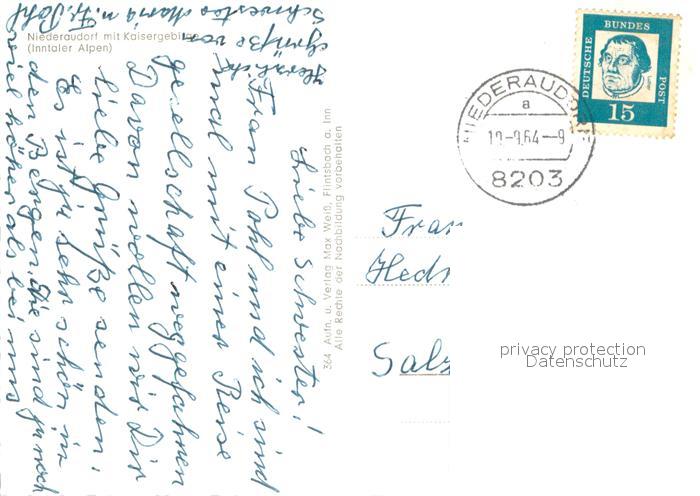 Niederaudorf mit Kaisergebirge
(Inntaler Alpen)
Liebe Schwester!
Frau Pohl und ich sind
mal mit einer Reise
gesellschaft weggefahren
Davon wollen wir Dir
liebe Grüße senden.
Es ist ja sehr schön in
den Bergen, die sind ja noch
viel höher als bei uns
Herzliche
Grüße von
Schwester Maria u. Fr. Pohl
364 Aufn. u. Verlag Max Weiß, Flintsbach a. Inn
Alle Rechte der Nachbildung vorbehalten
DEUTSCHE
BUNDES
POST
15
NIEDERAUDORF
a
19-9.64-9
8203
Frau
Hed
Salz
privacy protection
Datenschutz